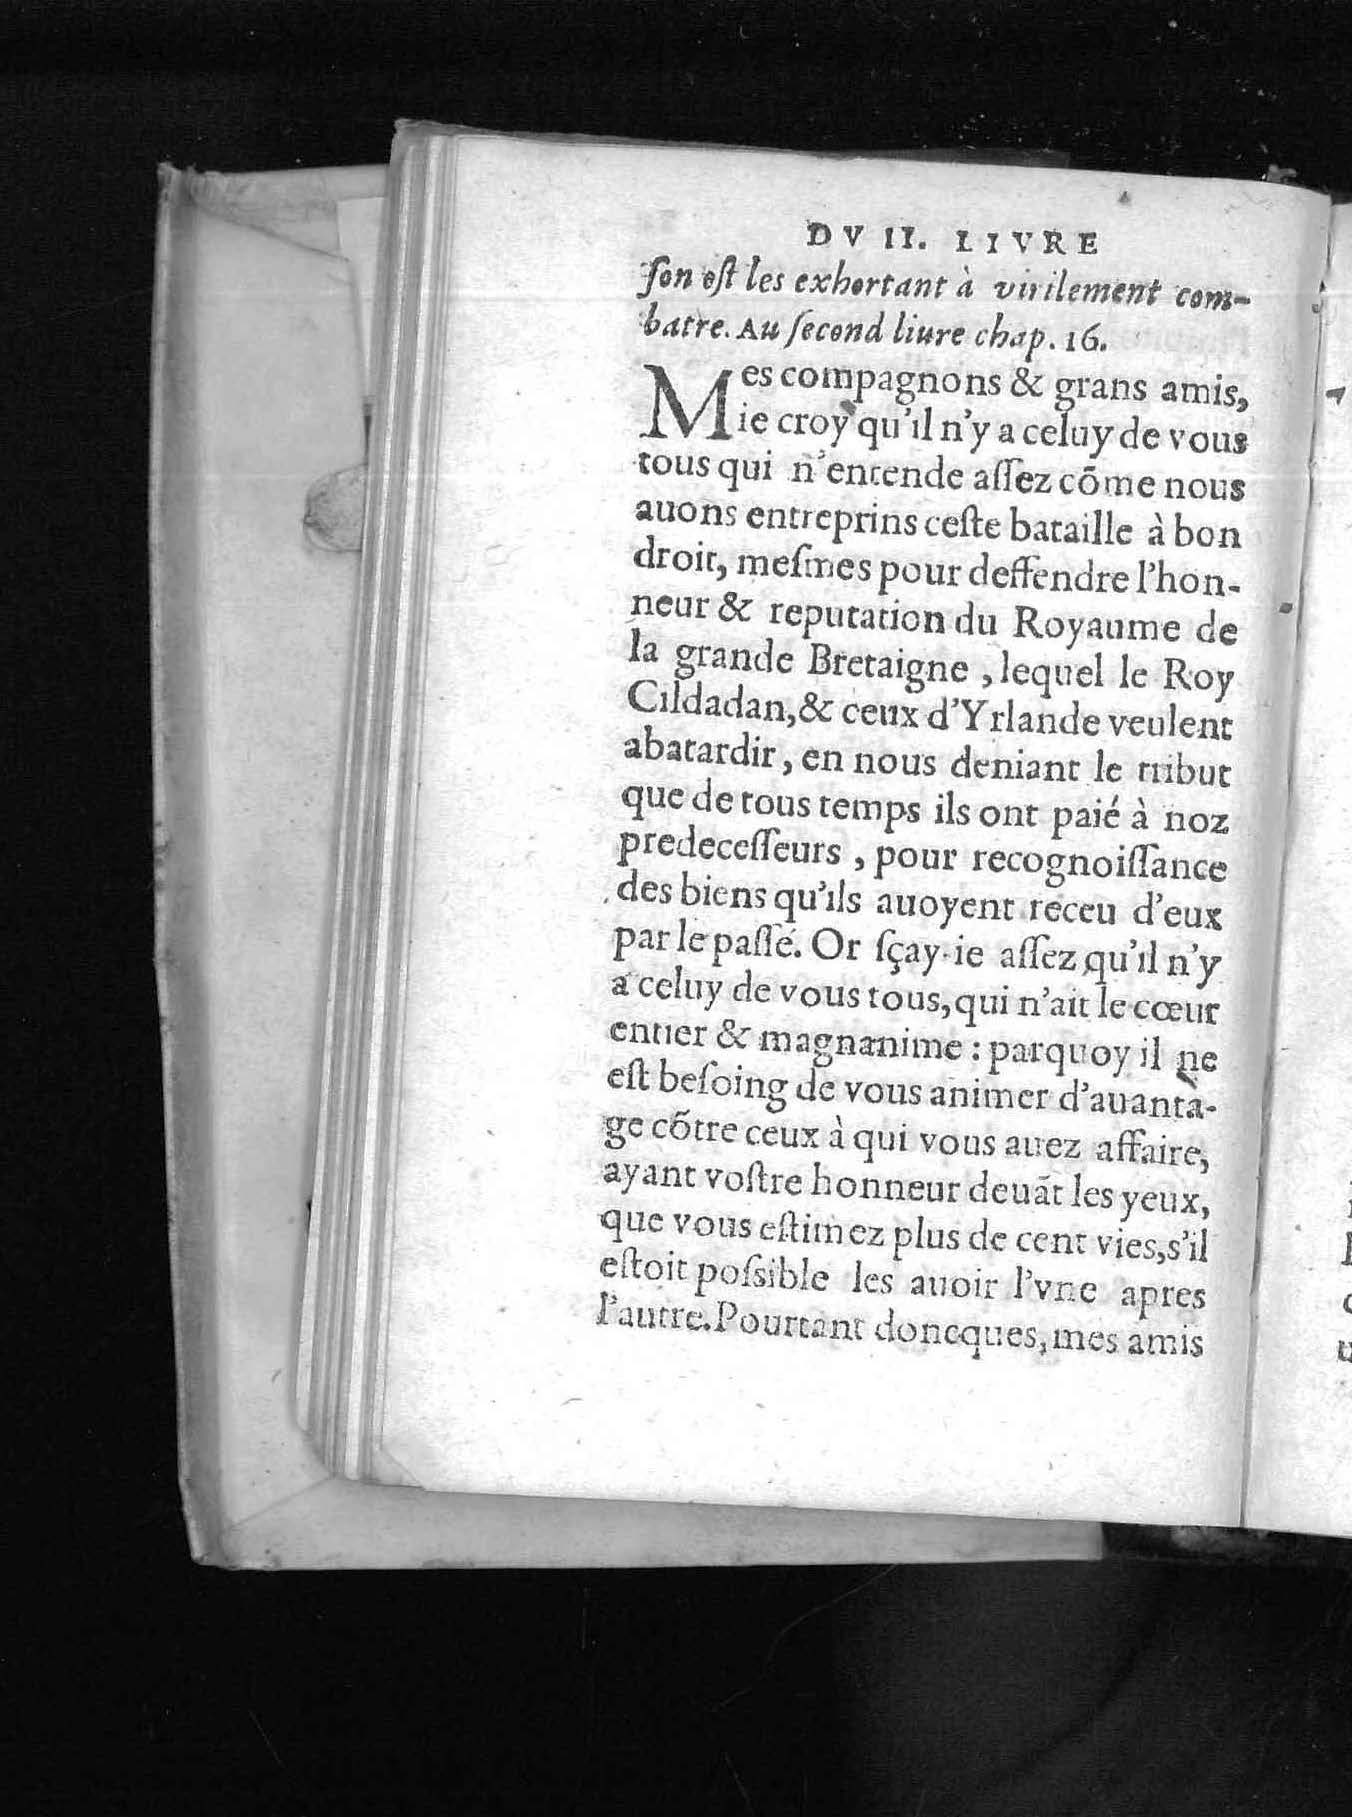 DV II. LIVRE
ſon oſt les exhortant à virilement com-
batre. Au ſecond liure chap. 16.
Mes compagnons & grans amis,
ie croy qu'il n'y a celuy de vous
tous qui n'entende aſſez cõme nous
auons entreprins ceſte bataille à bon
droit, meſmes pour deffendre l'hon-
neur & reputation du Royaume de
la grande Bretaigne, lequel le Roy
Cildadan, & ceux d'Yrlande veulent
abatardir, en nous deniant le tribut
que de tous temps ils ont paié à noz
predeceſſeurs, pour recognoiſſance
des biens qu'ils auoyent receu d'eux
par le paſſé. Or ſçay-ie aſſez qu'il n'y
a celuy de vous tous, qui n'ait le cœur
entier & magnanime: parquoy il ne
eſt beſoing de vous animer d'auanta-
ge cõtre ceux à qui vous auez affaire,
ayant voſtre honneur deuãt les yeux,
que vous eſtimez plus de cent vies, s'il
eſtoit poſsible les auoir l'vne apres
l'autre. Pourtant doncques, mes amis